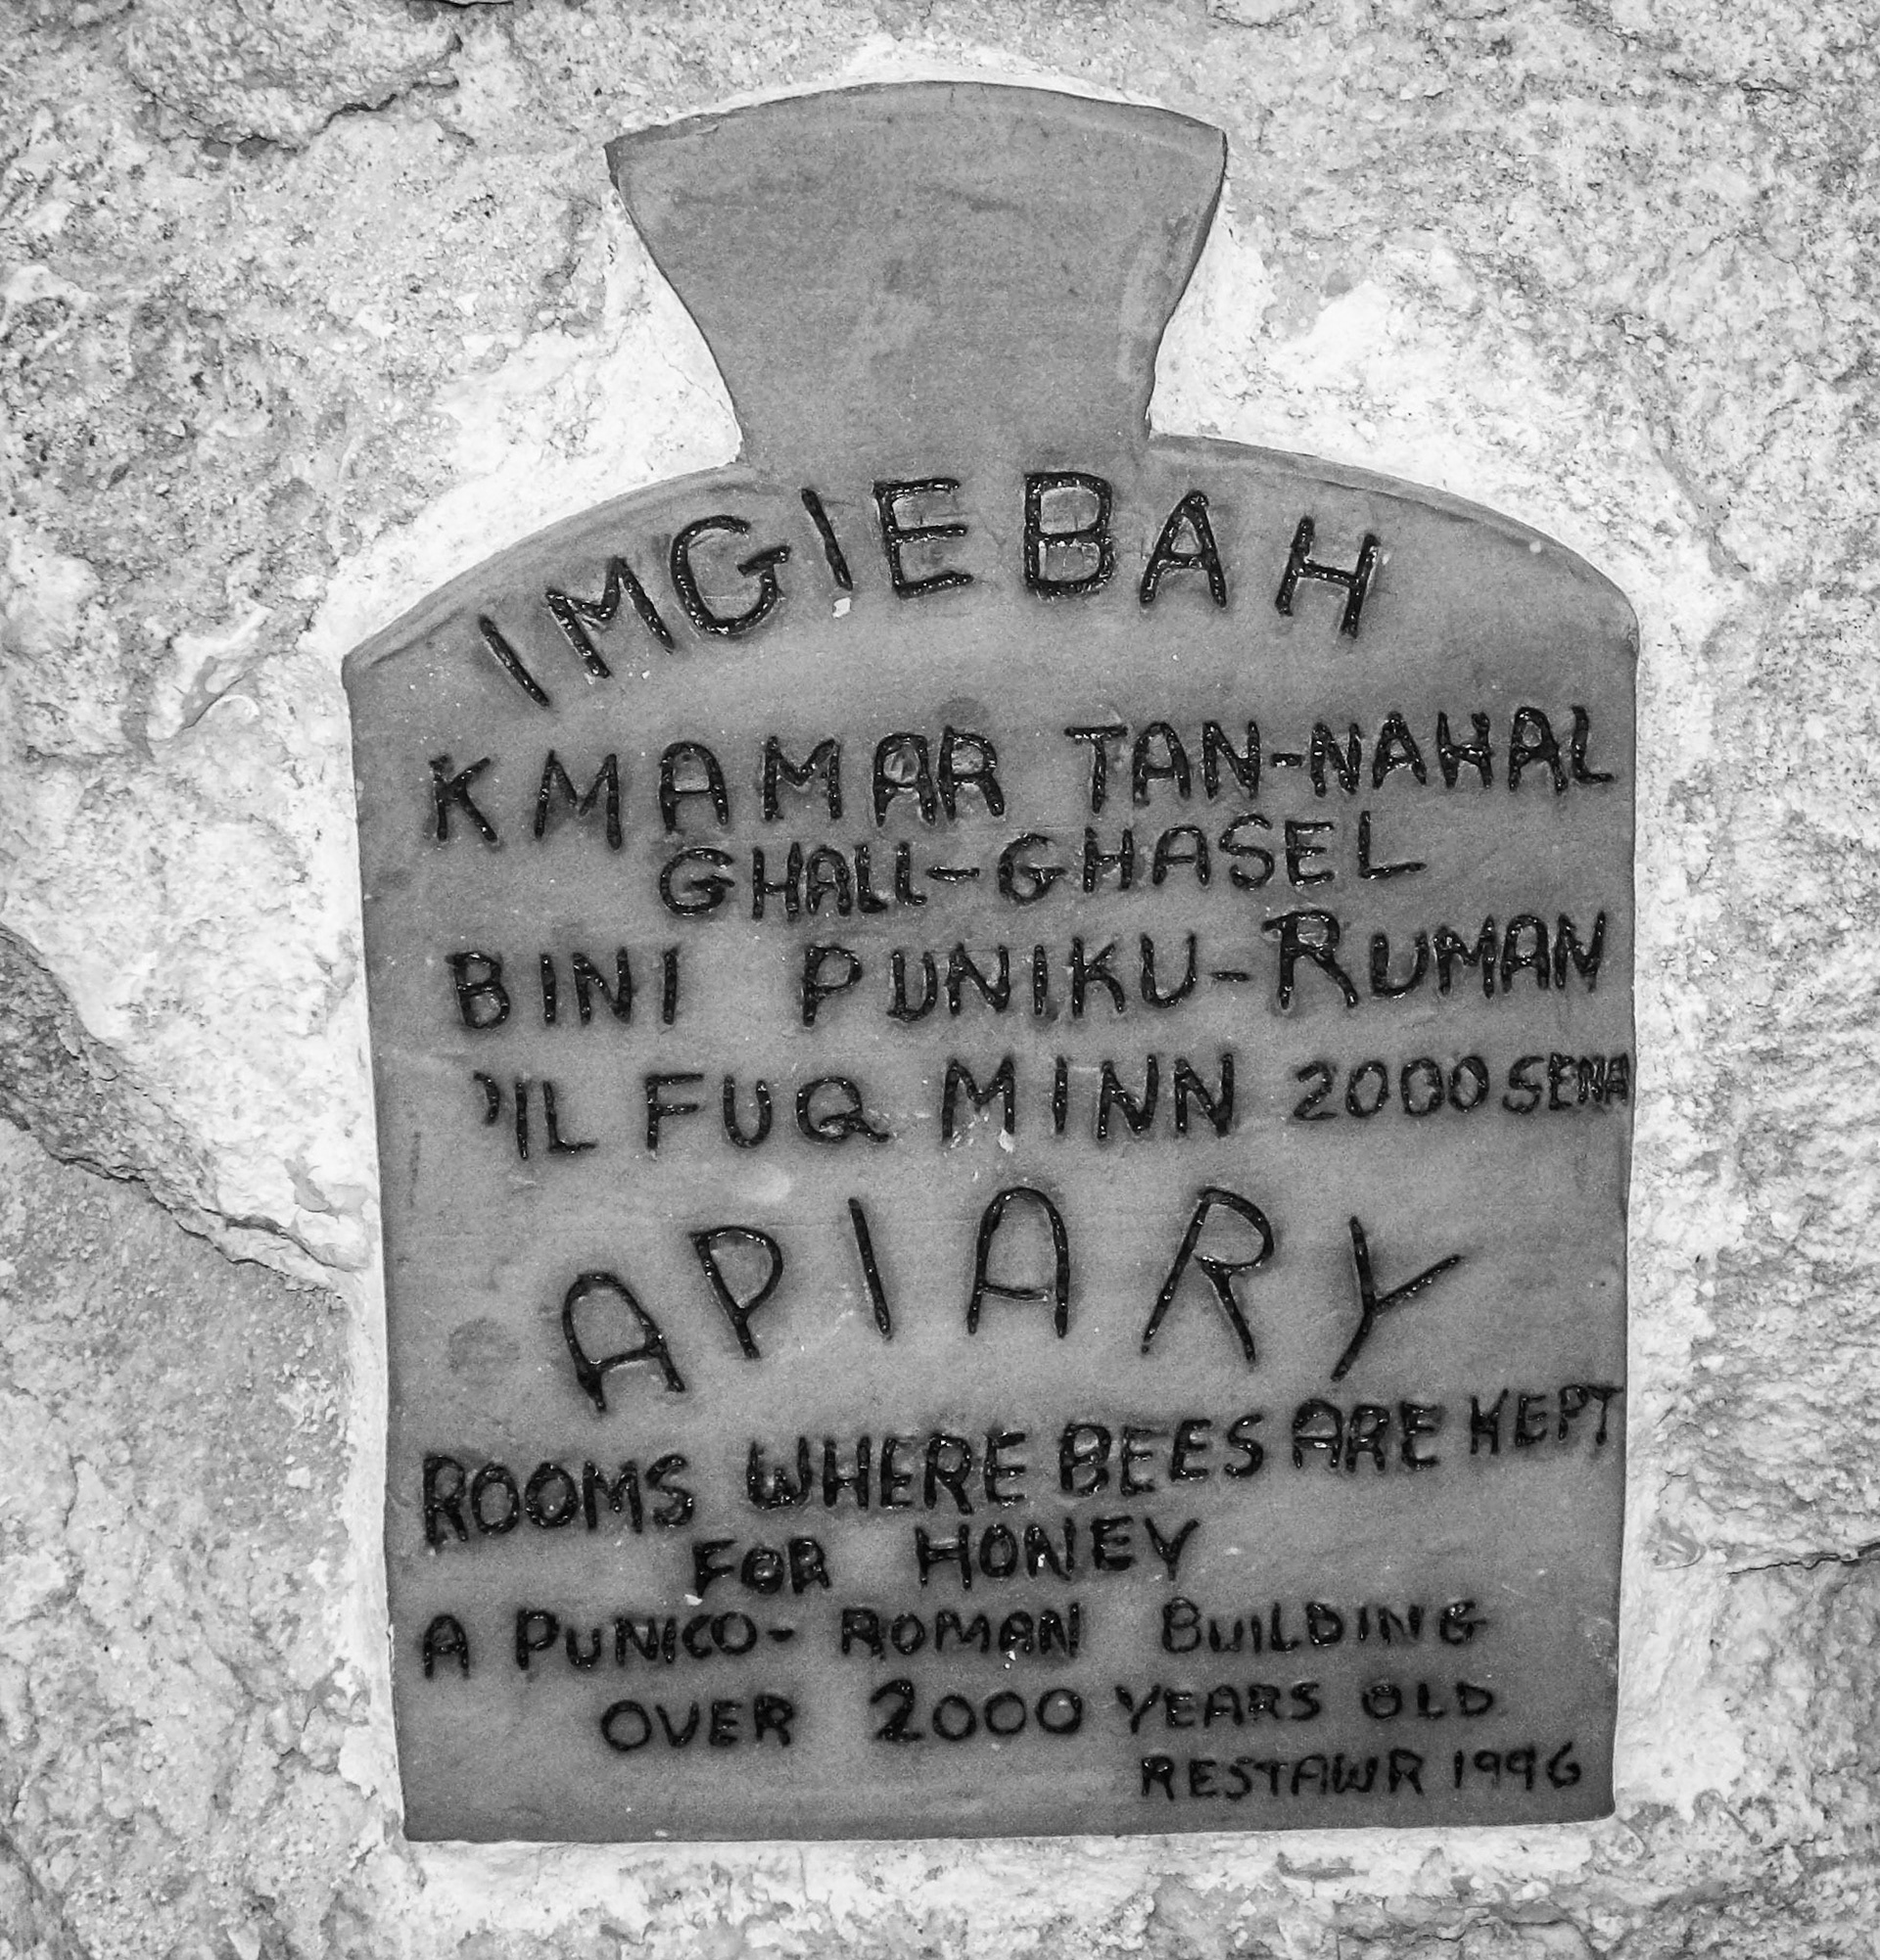 IMGIEBAH
KMAMAR TAN-NAHAL
GHALL-GHASEL
BINI PUNIKU-RUMAN
'IL FUQ MINN 2000 SENA
APIARY
ROOMS WHERE BEES ARE KEPT
FOR HONEY
A PUNICO-ROMAN BUILDING
OVER 2000 YEARS OLD
RESTAWR 1996